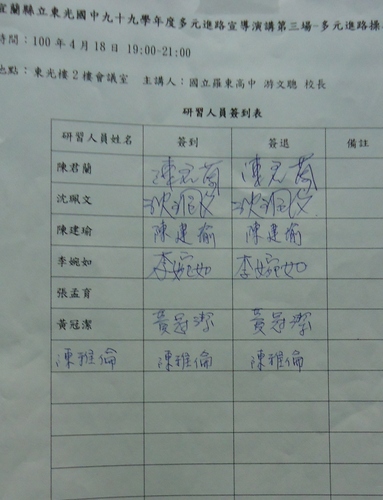 宜蘭縣立東光國中九十九學年度多元進路宣導演講第三場-多元進路操
時間：100 年 4 月 18 日 19:00-21:00
地點：東光樓 2 樓會議室 主講人：國立羅東高中 游文聰 校長
研習人員簽到表
研習人員姓名 簽到 簽退 備註
陳君蘭 陳君蘭 陳君蘭
沈珮文 沈珮文 沈珮文
陳建瑜 陳建瑜 陳建瑜
李婉如 李婉如 李婉如
張孟育
黃冠潔 黃冠潔 黃冠潔
陳雅倫 陳雅倫 陳雅倫